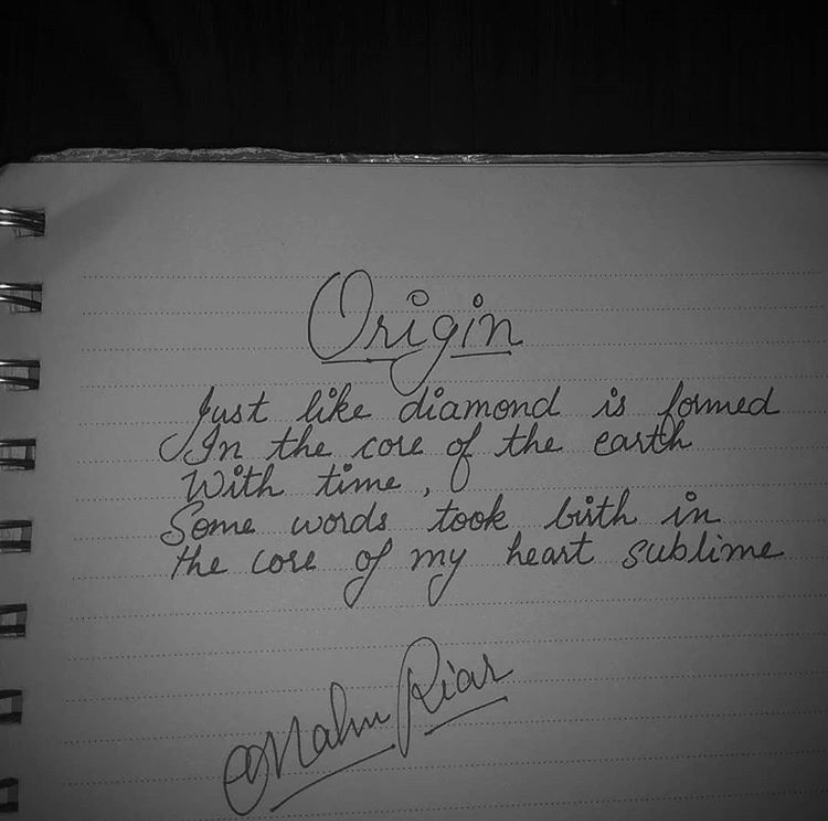 Origin
Just like diamond is formed
In the core of the earth
With time,
Some words took birth in
the core of my heart sublime
Riar